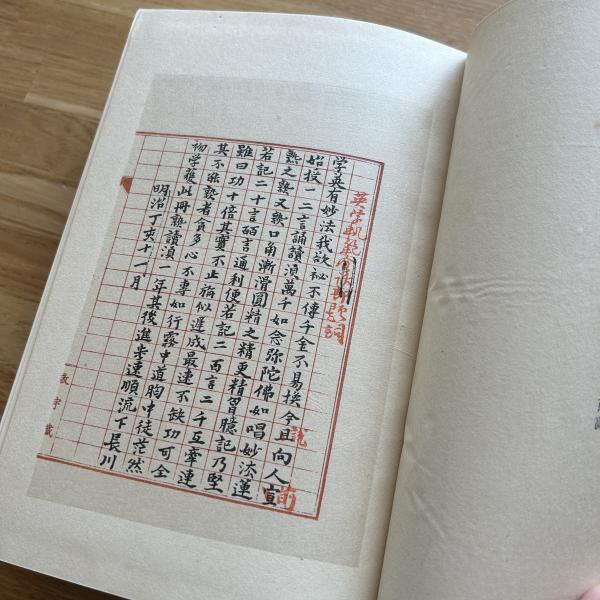 学英有妙法我欲祕不傳千金不易換今且向人宣
始授一二言誦讀須萬千如念弥陀佛如唱妙法蓮
熟之熟又熟口角漸滑圓精之精更精習臆記乃堅
若記二十言百言通利便若記二百言二千互牽連
雖曰功十倍其實不止旃似遲成最速不缺功可全
其不能熟者貪多心不專如行霧中道胸中徒茫然
初学獲此冊熟讀須一年其後進步速順流下長川
明治丁亥十一月
敬宇蔵